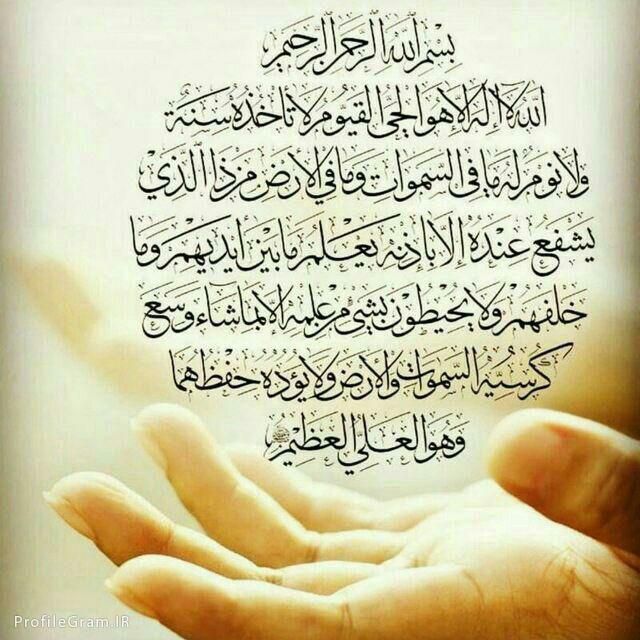 بسم الله الرحمن الرحيم
الله لا إله إلا هو الحي القيوم لا تأخذه سنة
ولا نوم له ما في السموات وما في الأرض من ذا الذي
يشفع عنده إلا بإذنه يعلم ما بين أيديهم وما
خلفهم ولا يحيطون بشيء من علمه إلا بما شاء وسع
كرسيه السموات والأرض ولا يؤده حفظهما
وهو العلي العظيم
ProfileGram.IR